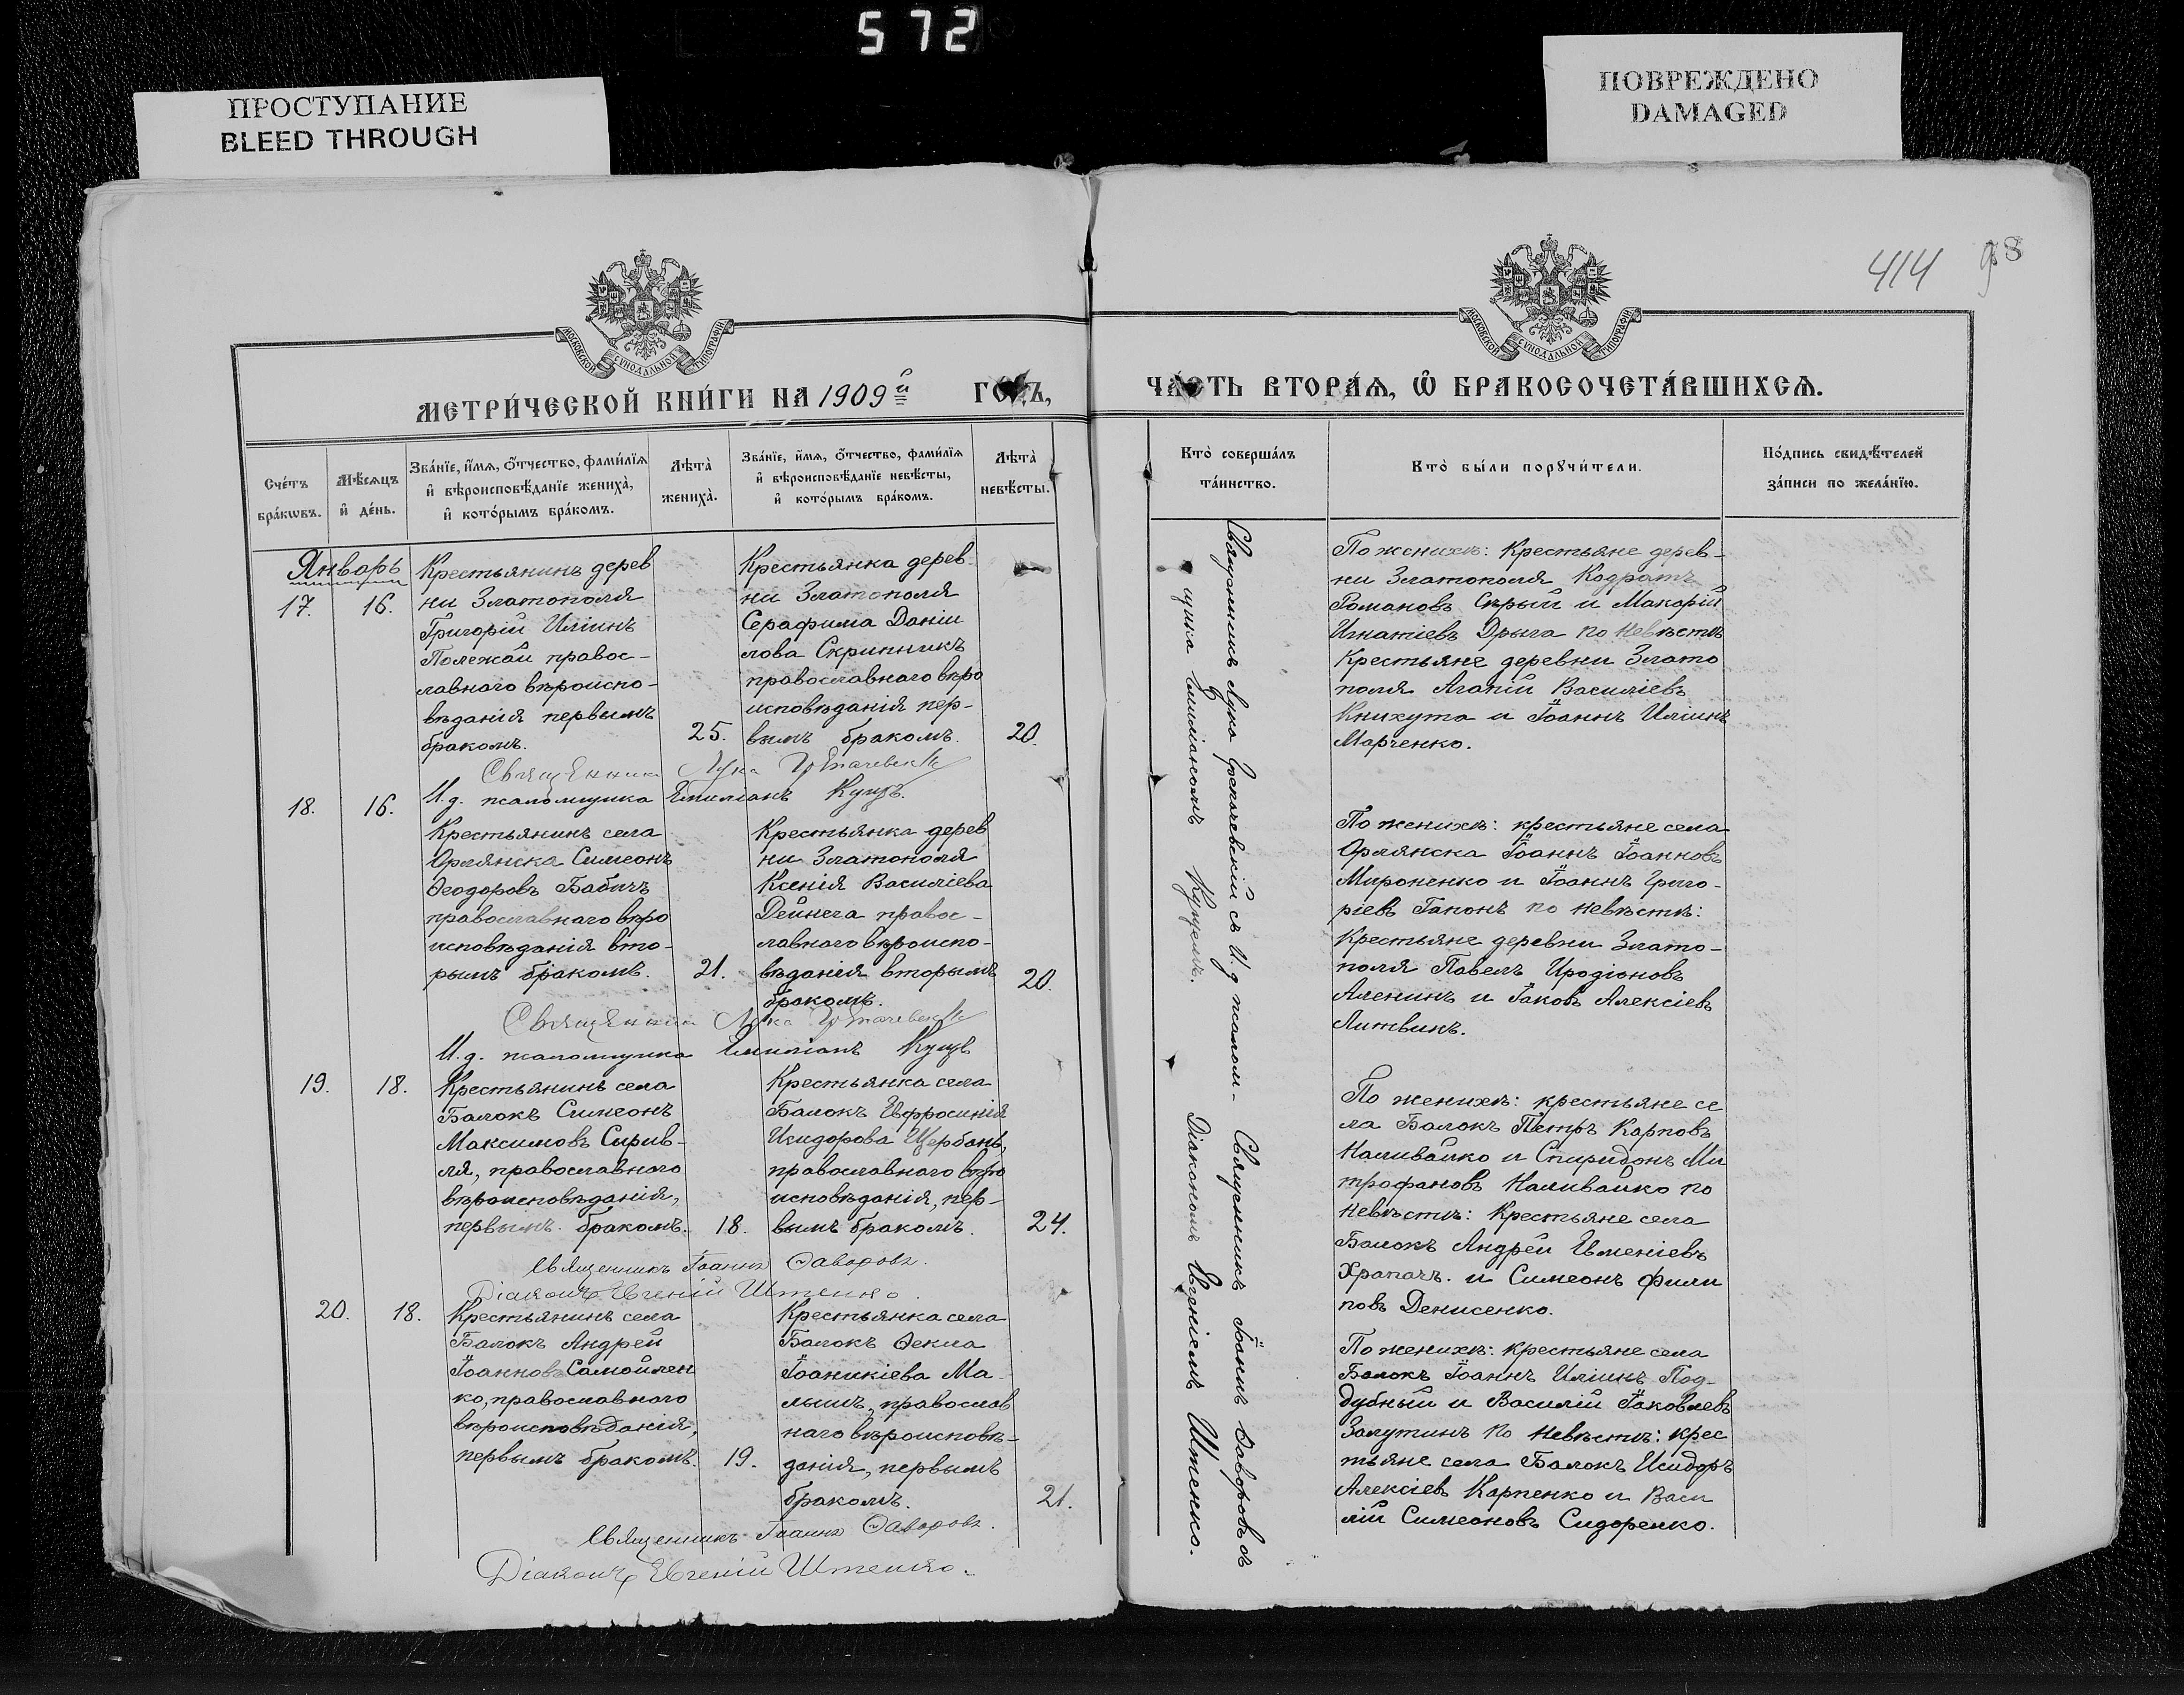 572
ПРОСТУПАНИЕ
BLEED THROUGH
ПОВРЕЖДЕНО
DAMAGED
414 98
МОСКОВСКОЙ СѴНОДАЛЬНОЙ ТИПОГРАФІИ
МОСКОВСКОЙ СѴНОДАЛЬНОЙ ТИПОГРАФІИ
МЕТРИ́ЧЕСКОЙ КНИ́ГИ НА 1909й ГОДЪ,
ЧАСТЬ ВТОРА́Я, Ѿ БРАКОСОЧЕТА́ВШИХСЯ.
Сче́тъ
бра́кѡвъ.
Мѣ́сяцъ
и҆ де́нь.
Зва́нїе, и҆́мя, ѻ҆́тчество, фами́лїя
и҆ вѣроисповѣ́данїе жениха̀,
и҆ кото́рымъ бра́комъ.
Лѣта̀
жениха̀.
Зва́нїе, и҆́мя, ѻ҆́тчество, фами́лїя
и҆ вѣроисповѣ́данїе невѣ́сты,
и҆ кото́рымъ бра́комъ.
Лѣта̀
невѣ́сты.
Кто̀ соверша́лъ
та́инство.
Кто̀ бы́ли порꙋчи́тели.
По́дпись свидѣ́телей
за́писи по жела́нїю.
Январь
17. 16.
Крестьянинъ дерев
ни Златополя
Григорій Иліинъ
Полежай правос-
лавнаго вѣроиспо-
вѣданія первымъ
бракомъ.
25.
Крестьянка дерев-
ни Златополя
Серафима Даніи
лова Скрипникъ
православнаго вѣро
исповѣданія пер-
вымъ бракомъ.
20.
Священникъ Лука
И.д. псаломщика Емиліанъ Кущъ.
По женихѣ: Крестьяне дерев-
ни Златополя Кодратъ
Романовъ Сѣрый и Макарій
Игнатіевъ Дрыга по невѣстѣ
Крестьяне деревни Злато
поля Агапій Василіевъ
Книхута и Іоаннъ Иліинъ
Марченко.
18. 16.
Крестьянинъ села
Орлянска Симеонъ
Ѳеодоровъ Бабичъ
православнаго вѣро
исповѣданія вто-
рымъ бракомъ.
21.
Крестьянка дерев
ни Златополя
Ксенія Василіева
Дейнега правос-
лавнаго вѣроиспо-
вѣданія вторымъ
бракомъ.
20.
Священникъ Лука
И.д. псаломщика Емиліанъ Кущъ
По женихѣ: крестьяне села
Орлянска Іоаннъ Іоанновъ
Мироненко и Іоаннъ Григо-
ріевъ Гапонъ по невѣстѣ:
Крестьяне деревни Злато-
поля Павелъ Иродіоновъ
Аленинъ и Іаковъ Алексіевъ
Литвинъ.
Священникъ Лука с И.д псалом-
щика Емиліаномъ Кущемъ.
19. 18.
Крестьянинъ села
Балокъ Симеонъ
Максимовъ Сырив-
ля, православнаго
вѣроисповѣданія,
первымъ бракомъ.
18.
Крестьянка села
Балокъ Евфросинія
Исидорова Щербань,
православнаго вѣро
исповѣданія, пер-
вымъ бракомъ.
24.
Священникъ Іоаннъ Ѳаворовъ.
Діаконъ Евгеній Штенко.
По женихѣ: крестьяне се
ла Балокъ Петръ Карповъ
Наливайко и Спиридонъ Ми
трофановъ Наливайко по
невѣстѣ: Крестьяне села
Балокъ Андрей Евменіевъ
Храпачъ. и Симеонъ Фили
повъ Денисенко.
20. 18.
Крестьянинъ села
Балокъ Андрей
Іоанновъ Самойлен
ко, православнаго
вѣроисповѣданія,
первымъ бракомъ.
19.
Крестьянка села
Балокъ Ѳекла
Іоаникіева Ма-
лышъ, православ
наго вѣроисповѣ-
данія, первымъ
бракомъ.
21.
Священникъ Іоаннъ Ѳаворовъ.
Діаконъ Евгеній Штенко.
По женихѣ: крестьяне села
Балокъ Іоаннъ Иліинъ Под-
дубный и Василій Іаковлевъ
Залутинъ по невѣстѣ: крес
тьяне села Балокъ Исидоръ
Алексіевъ Карпенко и Васи
лій Симеоновъ Сидоренко.
Священникъ Іоаннъ Ѳаворовъ съ
Діакономъ Евгеніемъ Штенко.